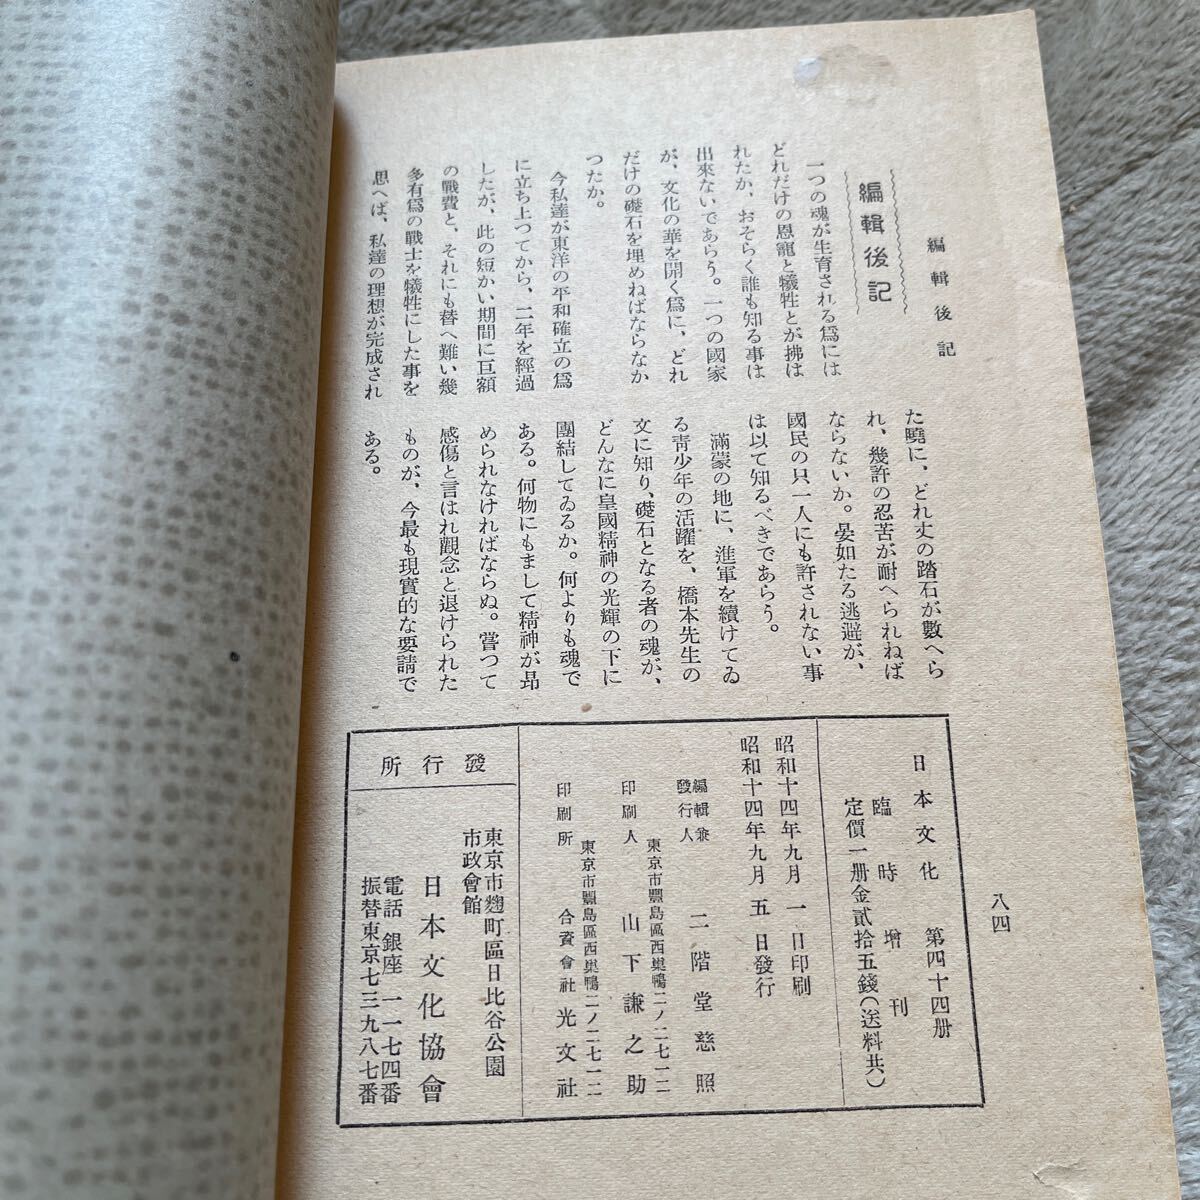 編輯後記
編輯後記
一つの魂が生育される爲には
どれだけの恩寵と犧牲とが拂は
れたか、おそらく誰も知る事は
出來ないであらう。一つの國家
が、文化の華を開く爲に、どれ
だけの礎石を埋めねばならなか
つたか。
今私達が東洋の平和確立の爲
に立ち上つてから、二年を經過
したが、此の短かい期間に巨額
の戰費と、それにも替へ難い幾
多有爲の戰士を犧牲にした事を
思へば、私達の理想が完成され
た曉に、どれ丈の踏石が數へら
れ、幾許の忍苦が耐へられねば
ならないか。晏如たる逃避が、
國民の只一人にも許されない事
は以て知るべきであらう。
滿蒙の地に、進軍を續けてゐ
る靑少年の活躍を、橋本先生の
文に知り、礎石となる者の魂が、
どんなに皇國精神の光輝の下に
團結してゐるか。何よりも魂で
ある。何物にもまして精神が昻
められなければならぬ。嘗つて
感傷と言はれ觀念と退けられた
ものが、今最も現實的な要請で
ある。
八四
日本文化 第四十四册
臨時增刊
定價一册金貳拾五錢(送料共)
昭和十四年九月一日印刷
昭和十四年九月五日發行
編輯兼
發行人 二階堂慈照
東京市豐島區西巢鴨二ノ二七一二
印刷人 山下謙之助
東京市豐島區西巢鴨二ノ二七一二
印刷所 合資會社 光文社
發行所
東京市麴町區日比谷公園
市政會館
日本文化協會
電話 銀座 一一七四番
振替東京七三九八七番